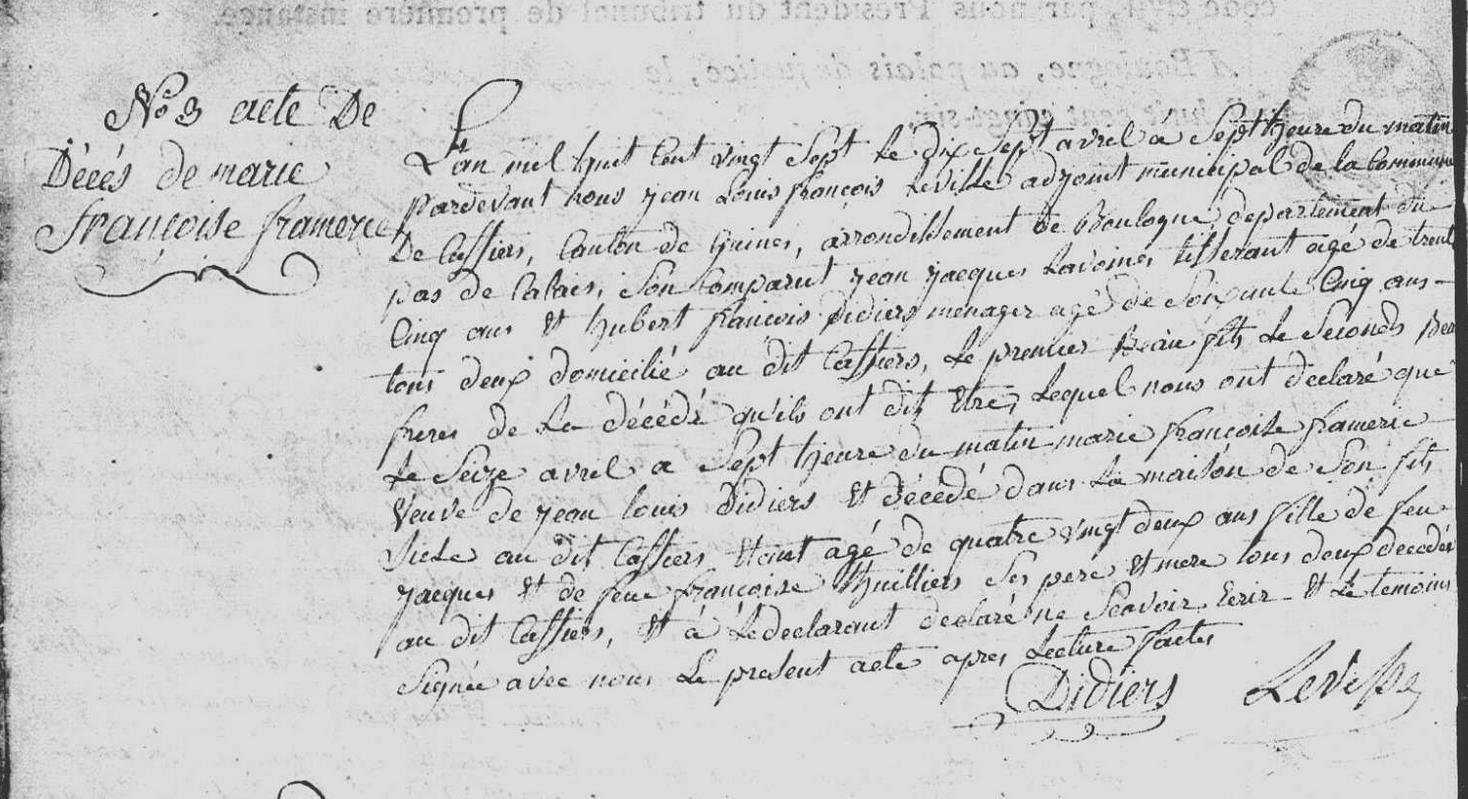 N° 3 acte De
Décés de marie
françoise framerie
L'an mil huit Cent vingt Sept Le dix Sept avril à Sept heure du matin
pardevant nous jean Louis françois Leville adjoint municipal de la Commune
De Caffiers, Canton de Guines, arrondissement de Boulogne departement du
pas de Calais, Son Comparut jean jacques Lavoines tisserant agé de trente
Cinq ans et hubert françois Didiers menager agé de Soixante Cinq ans
tous deux domicilié au dit Caffiers, Le premier Beau fils Le Seconds Beau
freres de La décédé qu'ils ont dit Etre, Lequel nous ont declaré que
Le Seize avril a Sept heure du matin marie françoise framerie
Veuve de jean Louis Didiers Et décédé dans La maison de Son fils
au dit Caffiers Etant agé de quatre vingt deux ans fille de feu
jacques Et de feue françoise thuilliers Ses pere Et mere tous deux decedés
au dit Caffiers, Et à Le declarant declaré ne Scavoir Ecrir Et Le temoins
Signée avec nous Le present acte apres Lecture faites
Didiers Leville